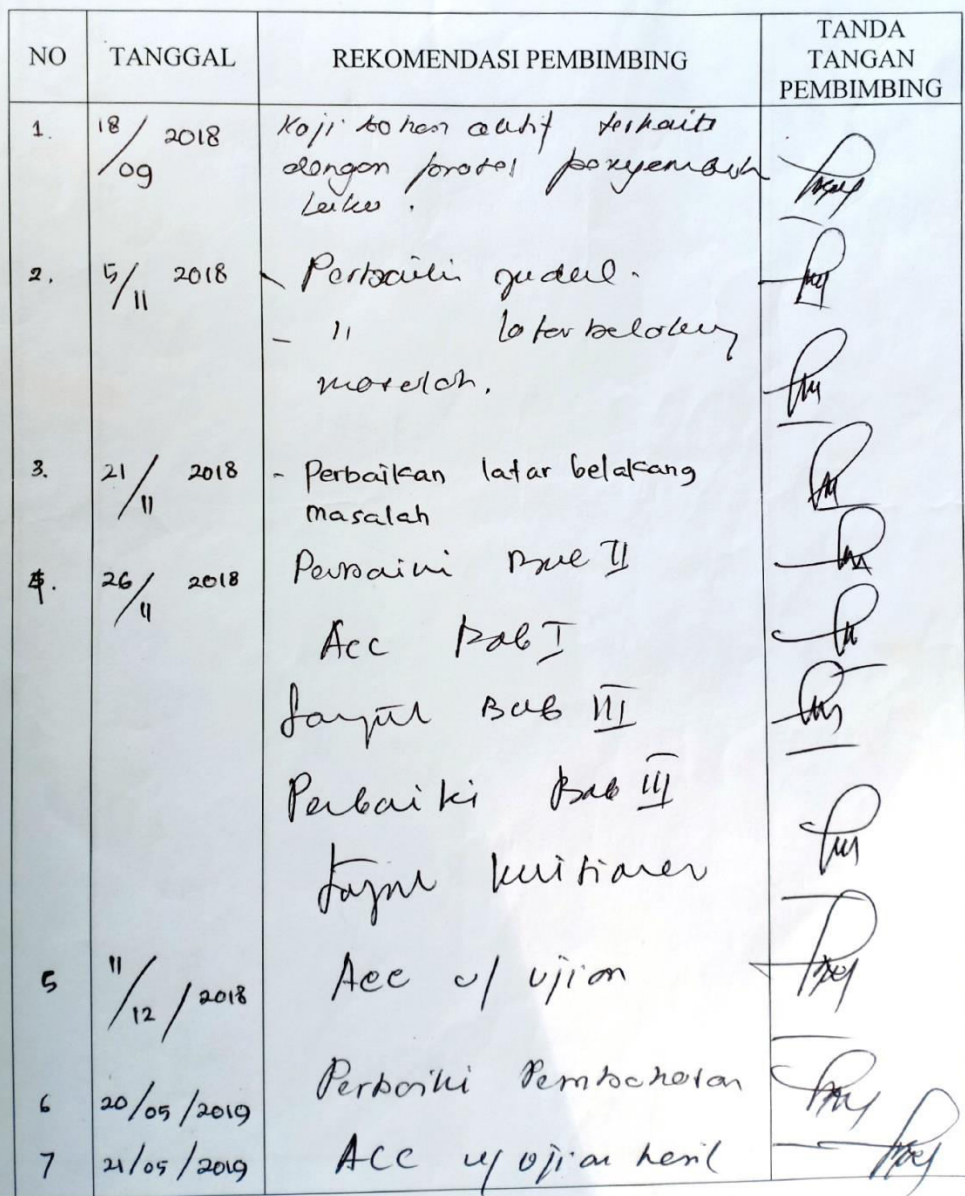 NO TANGGAL REKOMENDASI PEMBIMBING TANDA TANGAN PEMBIMBING
1. 18/09 2018 Kaji bahan aktif terkait
dengan proses penyembuh
luka.
2. 5/11 2018 - Perbaiki judul.
- 11 latar belakang
masalah.
3. 21/11 2018 - Perbaikan latar belakang
masalah
4. 26/11 2018 Perbaiki Bab II
Acc Bab I
Lanjut Bab III
Perbaiki Bab III
Lanjut kuisioner
5 11/12/2018 Acc u/ ujian
6 20/05/2019 Perbaiki Pembahasan
7 21/05/2019 ACC u/ ujian hasil